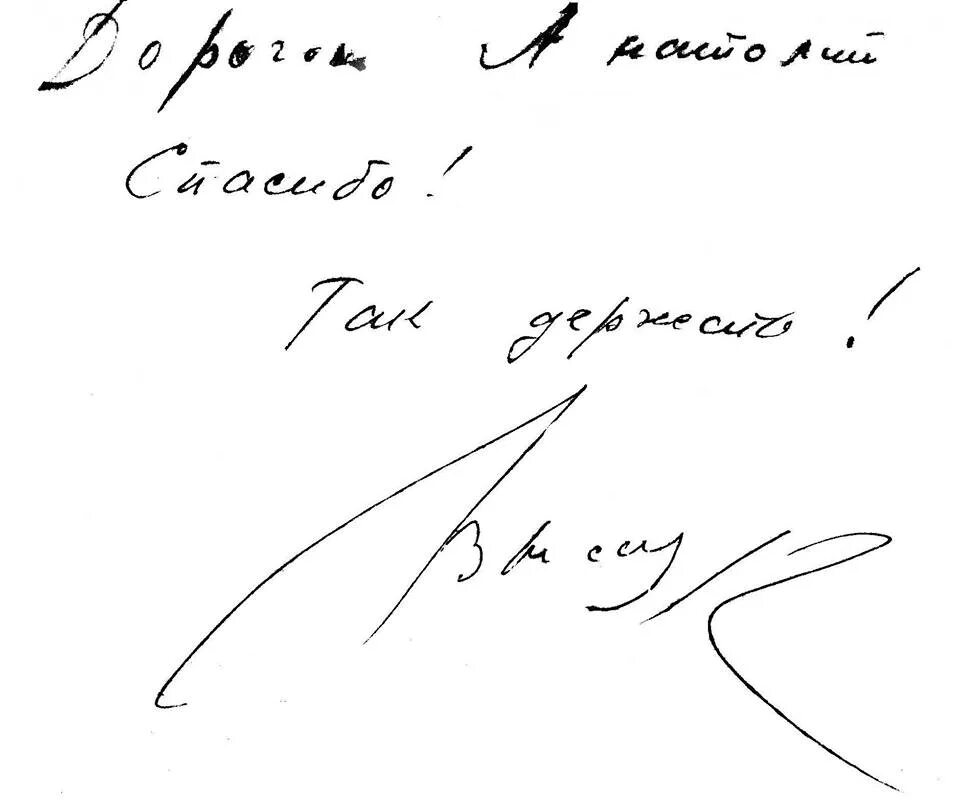 Дорогой Анатолий
Спасибо!
Так держать!